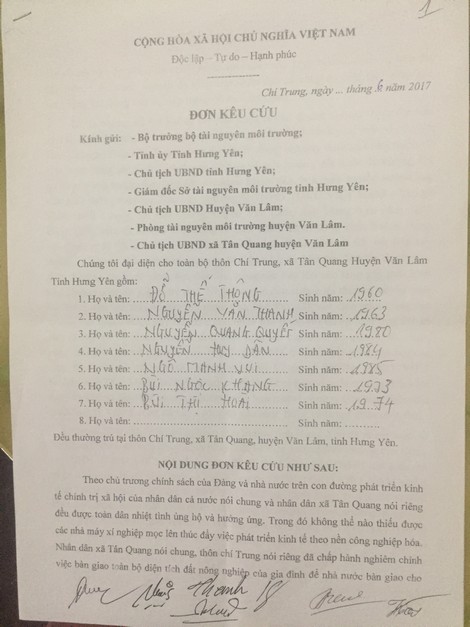 1
CỘNG HÒA XÃ HỘI CHỦ NGHĨA VIỆT NAM
Độc lập – Tự do – Hạnh phúc
Chí Trung, ngày ... tháng 6 năm 2017
ĐƠN KÊU CỨU
Kính gửi: - Bộ trưởng bộ tài nguyên môi trường;
- Tỉnh ủy Tỉnh Hưng Yên;
- Chủ tịch UBND tỉnh Hưng Yên;
- Giám đốc Sở tài nguyên môi trường tỉnh Hưng Yên;
- Chủ tịch UBND Huyện Văn Lâm;
- Phòng tài nguyên môi trường huyện Văn Lâm.
- Chủ tịch UBND xã Tân Quang huyện Văn Lâm
Chúng tôi đại diện cho toàn bộ thôn Chí Trung, xã Tân Quang Huyện Văn Lâm
Tỉnh Hưng Yên gồm:
1. Họ và tên: ĐỖ THẾ THỘNG Sinh năm: 1960
2. Họ và tên: NGUYỄN VĂN THANH Sinh năm: 1963
3. Họ và tên: NGUYỄN QUANG QUYẾT Sinh năm: 1980
4. Họ và tên: NGUYỄN DUY DÂN Sinh năm: 1984
5. Họ và tên: NGÔ MẠNH VUI Sinh năm: 1985
6. Họ và tên: BÙI NGỌC KHANG Sinh năm: 1973
7. Họ và tên: BÙI THỊ HOAI Sinh năm: 1974
8. Họ và tên: Sinh năm:
Đều thường trú tại thôn Chí Trung, xã Tân Quang, huyện Văn Lâm, tỉnh Hưng Yên.
NỘI DUNG ĐƠN KÊU CỨU NHƯ SAU:
Theo chủ trương chính sách của Đảng và nhà nước trên con đường phát triển kinh
tế chính trị xã hội của nhân dân cả nước nói chung và nhân dân xã Tân Quang nói riêng
đều được toàn dân nhiệt tình ủng hộ và hưởng ứng. Trong đó không thể nào thiếu được
các nhà máy xí nghiệp mọc lên thúc đẩy việc phát triển kinh tế theo nền công nghiệp hóa.
Nhân dân xã Tân Quang nói chung, thôn chí Trung nói riêng đã chấp hành nghiêm chỉnh
việc bàn giao toàn bộ diện tích đất nông nghiệp của gia đình để nhà nước bàn giao cho
Thanh